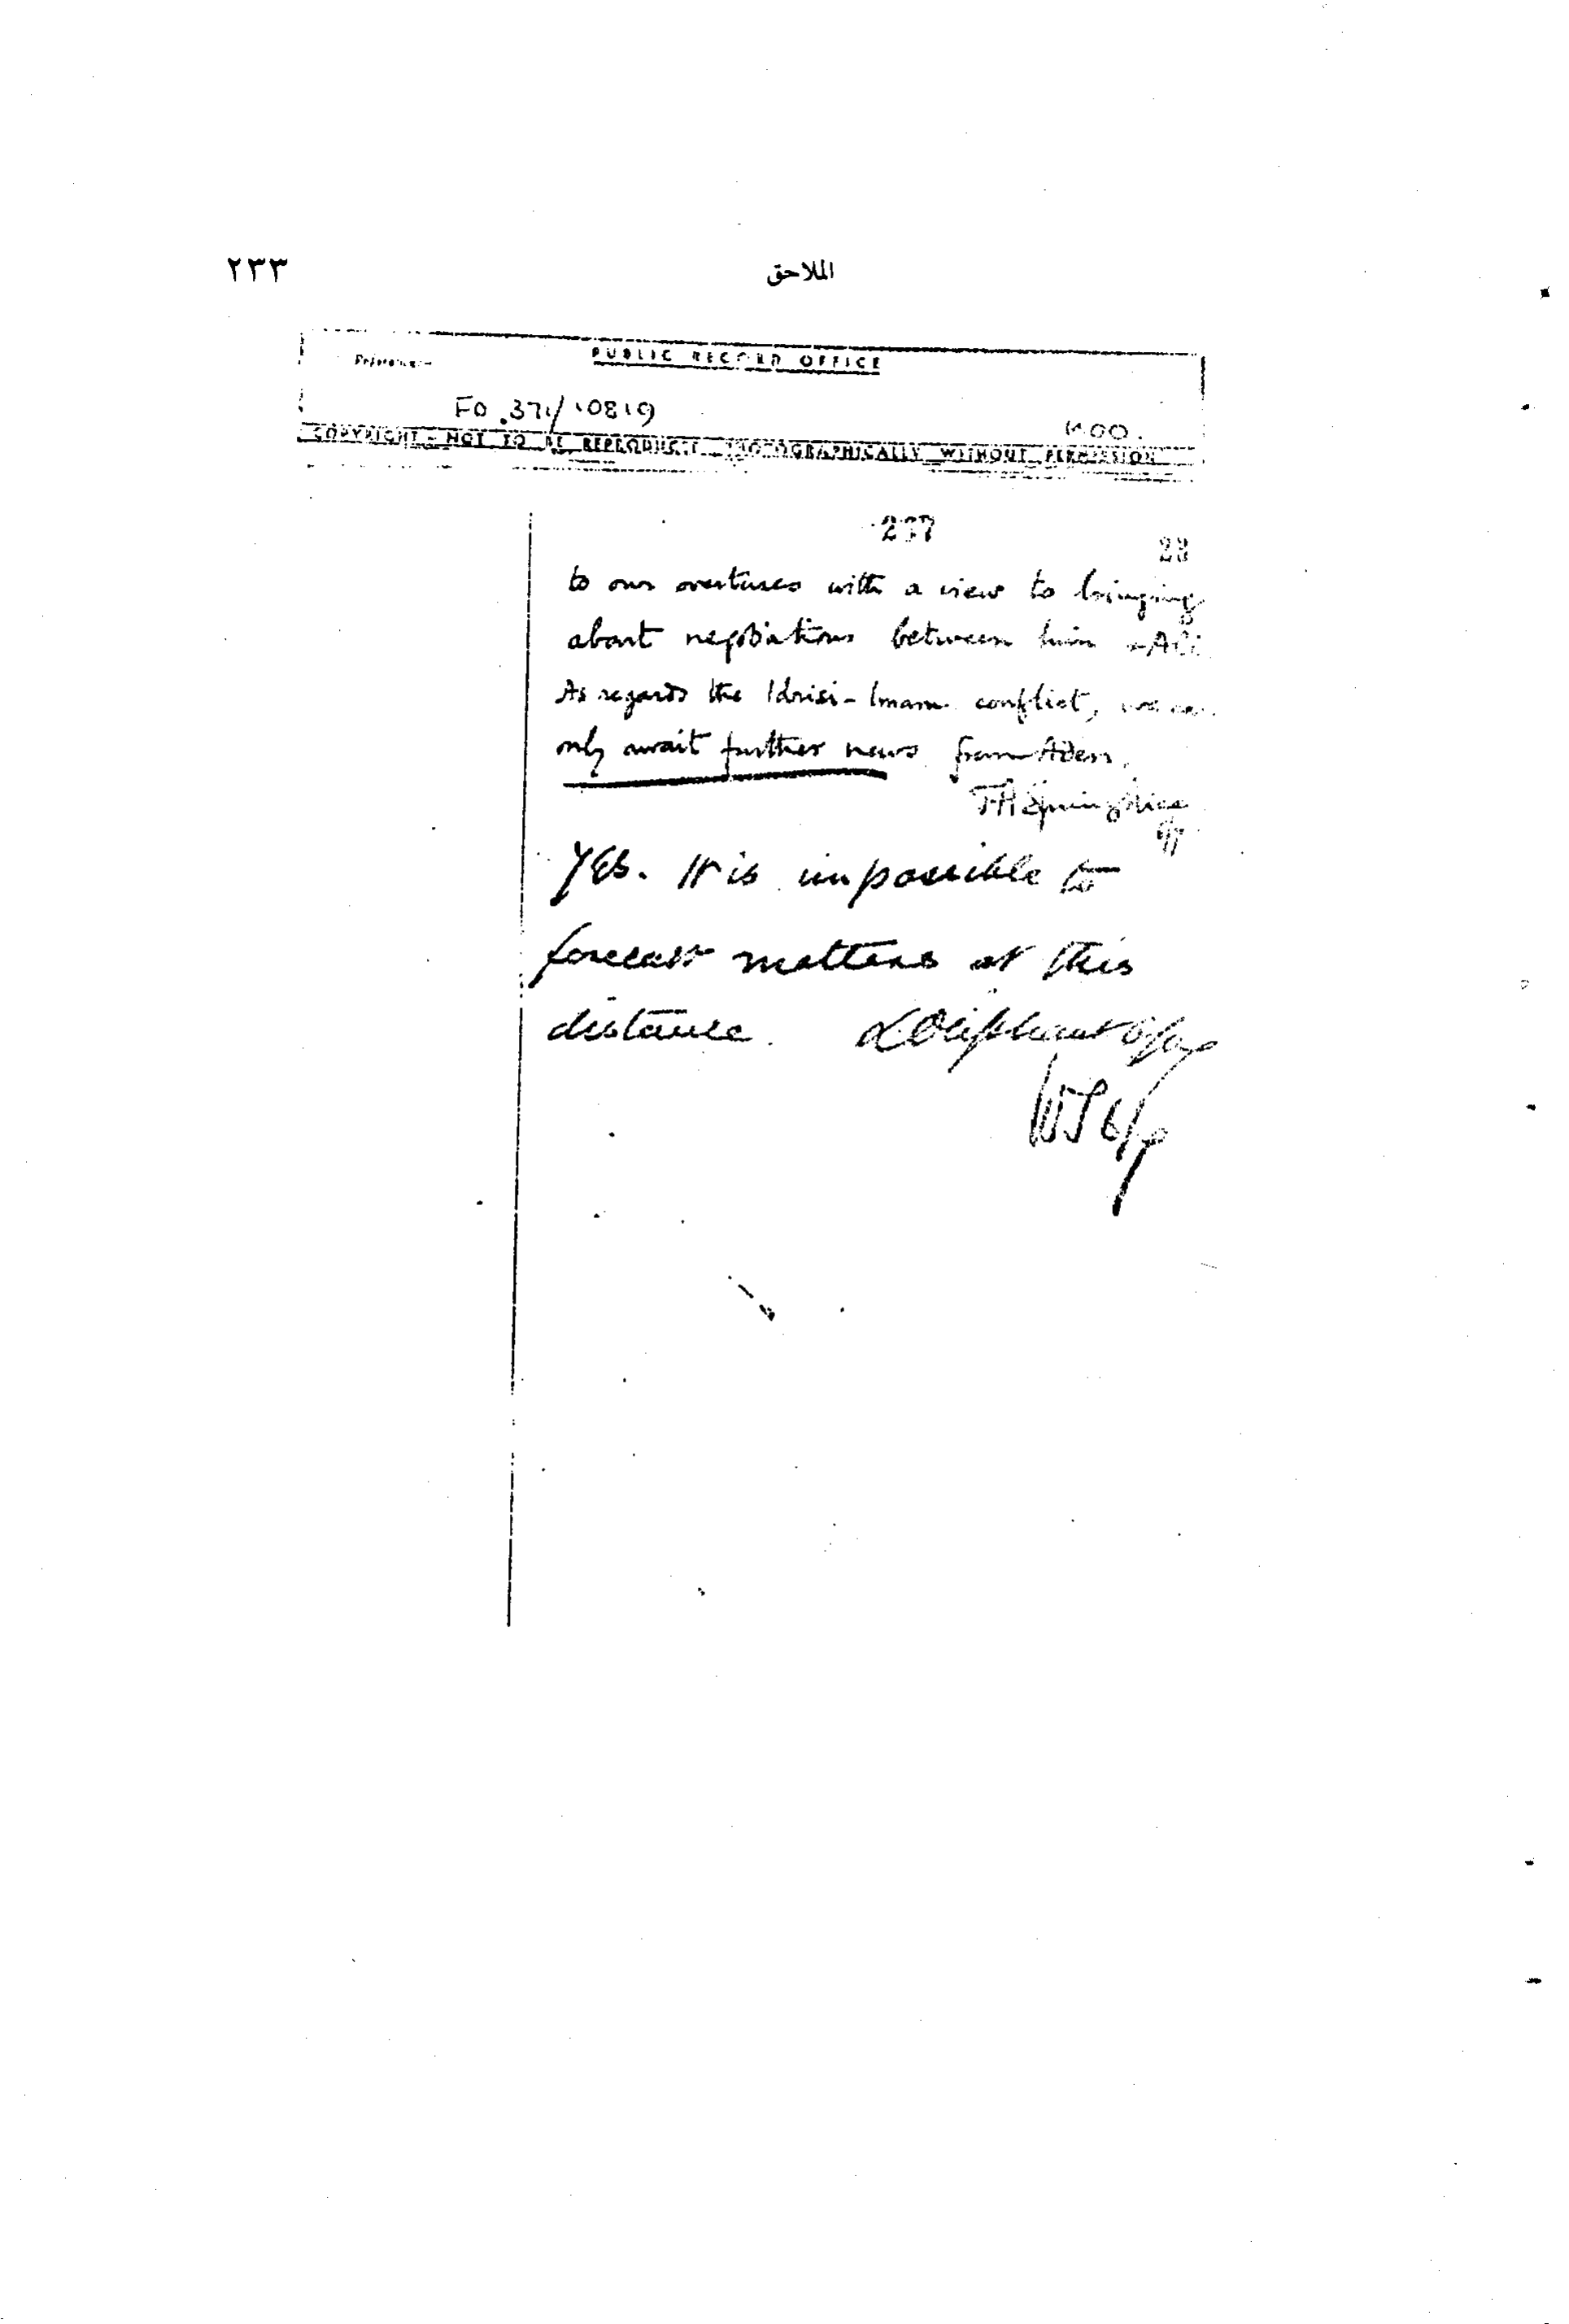 ٢٣٣
الملاحق
PUBLIC RECORD OFFICE
Reference:-
FO 371/10819
COPYRIGHT - NOT TO BE REPRODUCED PHOTOGRAPHICALLY WITHOUT PERMISSION
237
23
to our overtures with a view to bringing
about negotiations between him & Ali.
As regards the Idrisi-Imam conflict, we can
only await further news from Aden.
Yes. It is impossible to
forecast matters at this
distance. LOliphant